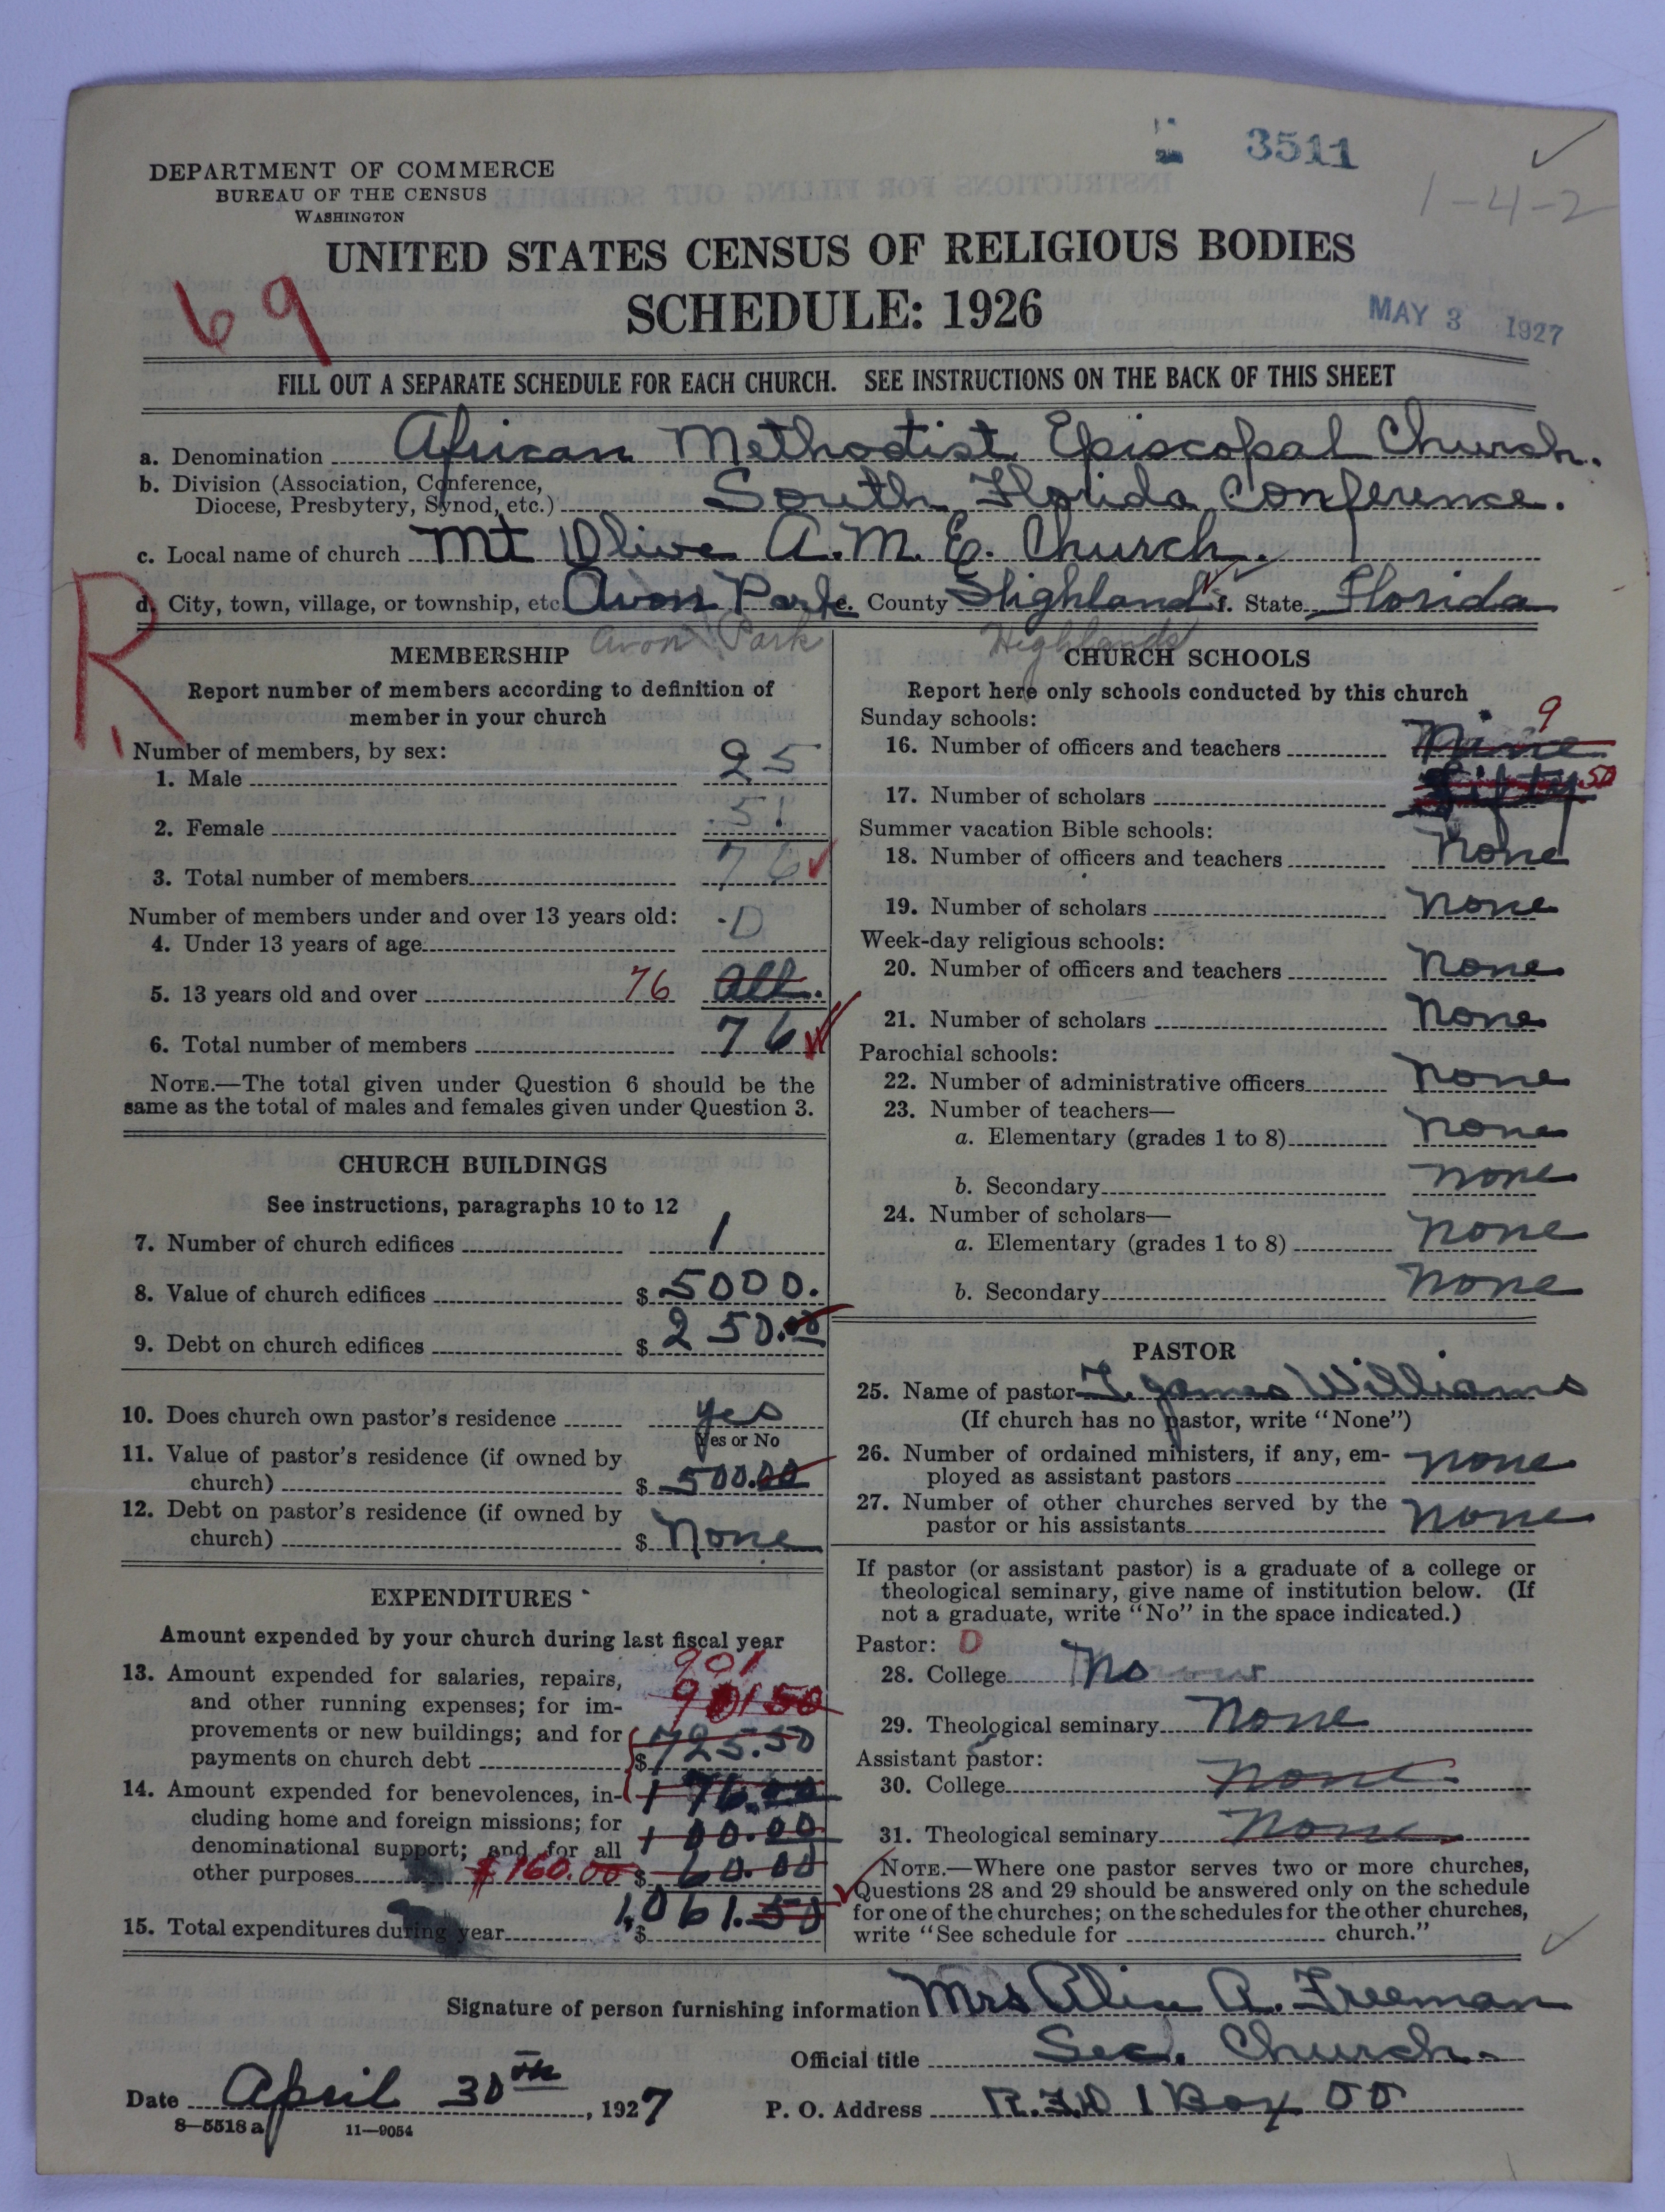 3511
1-4-2
DEPARTMENT OF COMMERCE
BUREAU OF THE CENSUS
WASHINGTON
UNITED STATES CENSUS OF RELIGIOUS BODIES
69
SCHEDULE: 1926
MAY 3 1927
FILL OUT A SEPARATE SCHEDULE FOR EACH CHURCH. SEE INSTRUCTIONS ON THE BACK OF THIS SHEET
a. Denomination African Methodist Episcopal Church.
b. Division (Association, Conference,
Diocese, Presbytery, Synod, etc.) South Florida Conference.
c. Local name of church Mt Olive A.M.E. Church.
R
d. City, town, village, or township, etc Avon Park e. County Highland f. State Florida
Avon Park Highlands
MEMBERSHIP
Report number of members according to definition of
member in your church
Number of members, by sex:
1. Male 25
2. Female 51
3. Total number of members 76
Number of members under and over 13 years old:
4. Under 13 years of age 0
5. 13 years old and over 76 All.
6. Total number of members 76
NOTE.—The total given under Question 6 should be the
same as the total of males and females given under Question 3.
CHURCH BUILDINGS
See instructions, paragraphs 10 to 12
7. Number of church edifices 1
8. Value of church edifices $ 5000.
9. Debt on church edifices $ 250.00
10. Does church own pastor's residence yes
Yes or No
11. Value of pastor's residence (if owned by
church) $ 500.00
12. Debt on pastor's residence (if owned by
church) $ None
EXPENDITURES
Amount expended by your church during last fiscal year
13. Amount expended for salaries, repairs, 901
and other running expenses; for im- 901 50
provements or new buildings; and for
payments on church debt $ 725.50
14. Amount expended for benevolences, in- 176.00
cluding home and foreign missions; for 100.00
denominational support; and for all
other purposes $160.00 $ 60.00
15. Total expenditures during year $ 1,061.50
CHURCH SCHOOLS
Report here only schools conducted by this church
Sunday schools: 9
16. Number of officers and teachers Nine
17. Number of scholars Fifty 50
Summer vacation Bible schools:
18. Number of officers and teachers None
19. Number of scholars None
Week-day religious schools:
20. Number of officers and teachers None
21. Number of scholars None
Parochial schools:
22. Number of administrative officers None
23. Number of teachers—
a. Elementary (grades 1 to 8) None
b. Secondary None
24. Number of scholars—
a. Elementary (grades 1 to 8) None
b. Secondary None
PASTOR
25. Name of pastor T. James Williams
(If church has no pastor, write "None")
26. Number of ordained ministers, if any, em-
ployed as assistant pastors None
27. Number of other churches served by the
pastor or his assistants None
If pastor (or assistant pastor) is a graduate of a college or
theological seminary, give name of institution below. (If
not a graduate, write "No" in the space indicated.)
Pastor: 0
28. College No
29. Theological seminary None
Assistant pastor:
30. College None
31. Theological seminary None
NOTE.—Where one pastor serves two or more churches,
Questions 28 and 29 should be answered only on the schedule
for one of the churches; on the schedules for the other churches,
write "See schedule for church."
Signature of person furnishing information Mrs Alice A. Freeman
Official title Sec. Church.
Date April 30th, 1927
P. O. Address R.F.D 1 Box 00
8—5518 a 11—9054